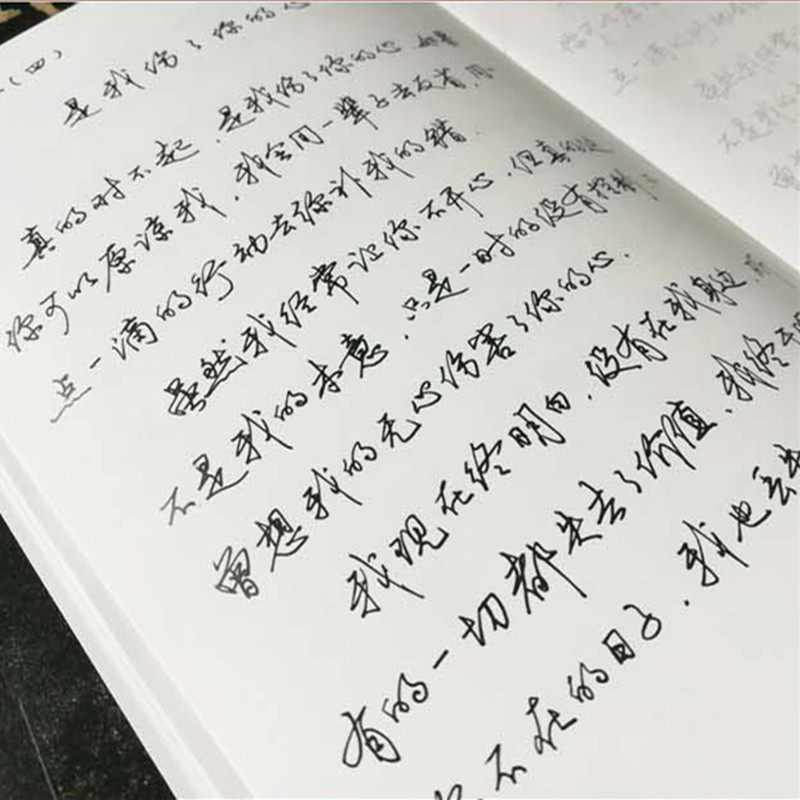 (四)
是我伤了你的心
真的对不起，是我伤了你的心 如果
你可以原谅我，我会用一辈子去反省，用
点一滴的行动去弥补我的错．
虽然我经常让你不开心，但真的这
不是我的本意，只是一时的没有控制
曾想我的无心伤害了你的心．
我现在终明白，没有在我身边 所
有的一切都失去了价值，我终于明
不在的日子，我也丢失